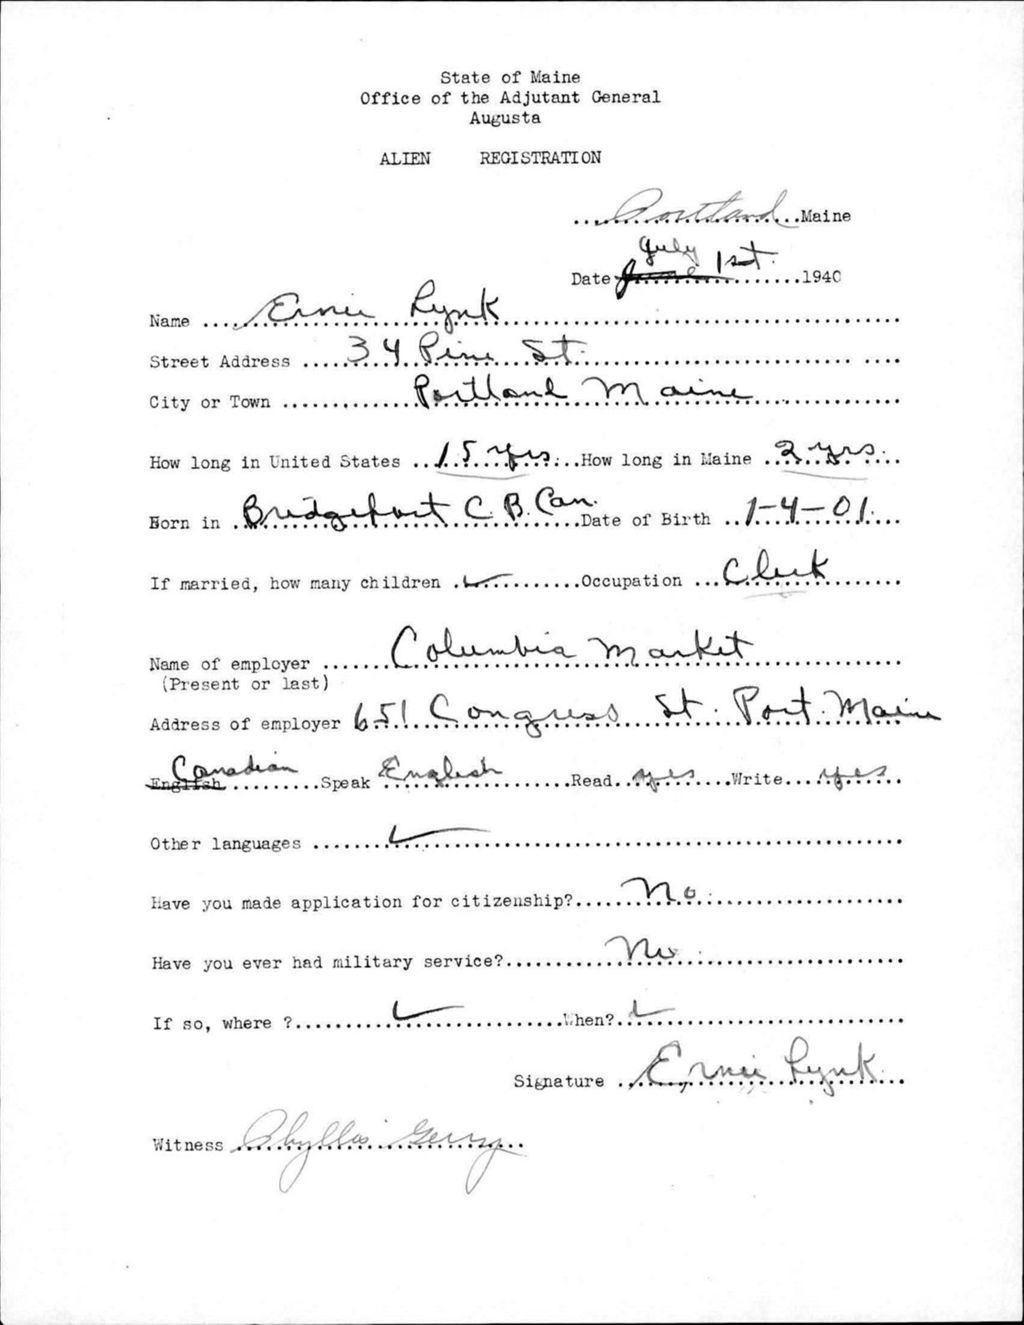 State of Maine
Office of the Adjutant General
Augusta
ALIEN REGISTRATION
Portland Maine
July
Date June 1st. 1940
Name Ernie Lynk
Street Address 34 Pine St.
City or Town Portland Maine
How long in United States 15 yrs. How long in Maine 2 yrs.
Born in Bridgeport C. B. Can. Date of Birth 1-4-01.
If married, how many children ✓ Occupation Clerk
Name of employer Columbia Market
(Present or last)
Address of employer 651 Congress St. Port. Maine
Canadian
English Speak English Read yes Write yes
Other languages ✓
Have you made application for citizenship? No.
Have you ever had military service? No.
If so, where ? ✓ When? ✓
Signature Ernie Lynk
Witness Phyllis Gerry